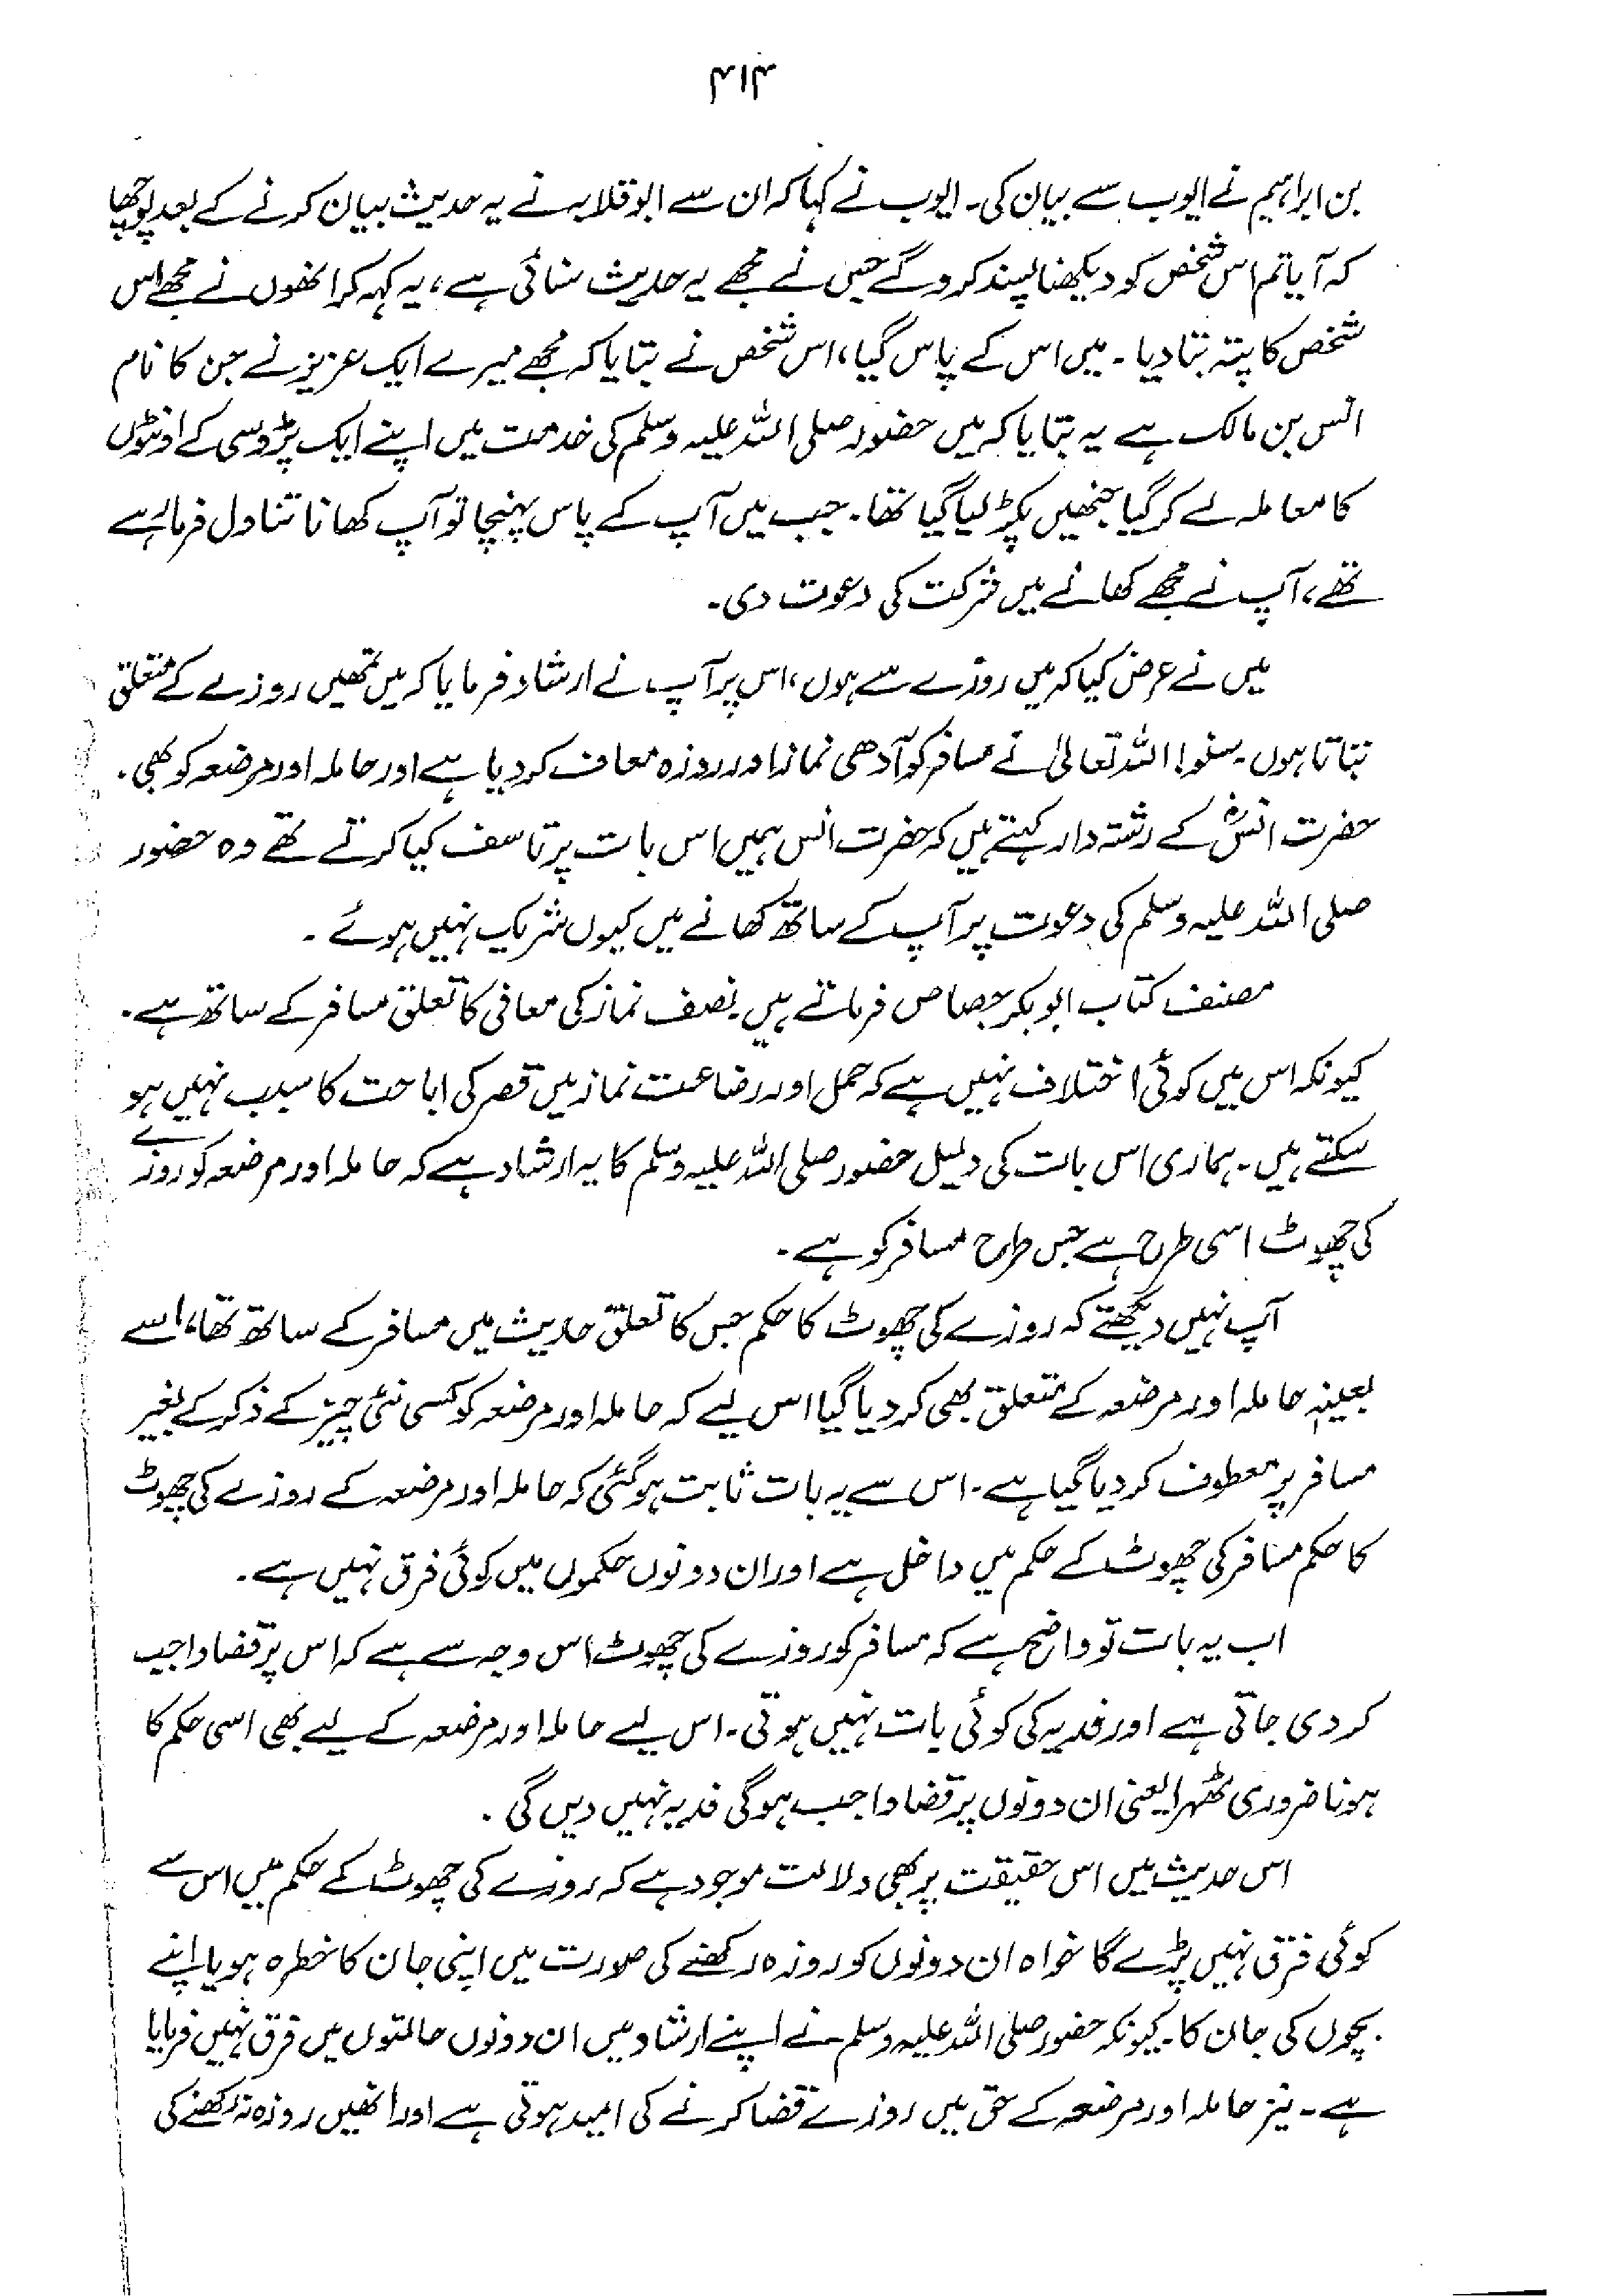 ۴۱۴
بن ابراہیم نے ایوب سے بیان کی۔ ایوب نے کہا کہ ان سے ابوقلابہ نے یہ حدیث بیان کرنے کے بعد پوچھا
کہ آیا تم اس شخص کو دیکھنا پسند کرو گے جس نے مجھے یہ حدیث سنائی ہے، یہ کہہ کر انھوں نے مجھے اس
شخص کا پتہ بتا دیا۔ میں اس کے پاس گیا، اس شخص نے بتایا کہ مجھے میرے ایک عزیز نے جن کا نام
انس بن مالک ہے یہ بتایا کہ میں حضور صلی اللہ علیہ وسلم کی خدمت میں اپنے ایک پڑوسی کے اونٹوں
کا معاملہ لے کر گیا جنھیں پکڑ لیا گیا تھا۔ جب میں آپ کے پاس پہنچا تو آپ کھانا تناول فرما رہے
تھے، آپ نے مجھے کھانے میں شرکت کی دعوت دی۔
میں نے عرض کیا کہ میں روزے سے ہوں، اس پر آپ نے ارشاد فرمایا کہ میں تمھیں روزے کے متعلق
بتاتا ہوں۔ سنو! اللہ تعالیٰ نے مسافر کو آدھی نماز اور روزہ معاف کر دیا ہے اور حاملہ اور مرضعہ کو بھی۔
حضرت انسؓ کے رشتہ دار کہتے ہیں کہ حضرت انس ہمیں اس بات پر تاسف کیا کرتے تھے وہ حضور
صلی اللہ علیہ وسلم کی دعوت پر آپ کے ساتھ کھانے میں کیوں شریک نہیں ہوئے۔
مصنف کتاب ابوبکر جصاص فرماتے ہیں نصف نماز کی معافی کا تعلق مسافر کے ساتھ ہے۔
کیونکہ اس میں کوئی اختلاف نہیں ہے کہ حمل اور رضاعت نماز میں قصر کی اباحت کا سبب نہیں ہو
سکتے ہیں۔ ہماری اس بات کی دلیل حضور صلی اللہ علیہ وسلم کا یہ ارشاد ہے کہ حاملہ اور مرضعہ کو روزے
کی چھوٹ اسی طرح ہے جس طرح مسافر کو ہے۔
آپ نہیں دیکھتے کہ روزے کی چھوٹ کا حکم جس کا تعلق حدیث میں مسافر کے ساتھ تھا، اسے
بعینہٖ حاملہ اور مرضعہ کے متعلق بھی کر دیا گیا اس لیے کہ حاملہ اور مرضعہ کو کسی نئی چیز کے ذکر کے بغیر
مسافر پر معطوف کر دیا گیا ہے۔ اس سے یہ بات ثابت ہو گئی کہ حاملہ اور مرضعہ کے روزے کی چھوٹ
کا حکم مسافر کی چھوٹ کے حکم میں داخل ہے اور ان دونوں حکموں میں کوئی فرق نہیں ہے۔
اب یہ بات تو واضح ہے کہ مسافر کو روزے کی چھوٹ اس وجہ سے ہے کہ اس پر قضا واجب
کر دی جاتی ہے اور فدیہ کی کوئی بات نہیں ہوتی۔ اس لیے حاملہ اور مرضعہ کے لیے بھی اسی حکم کا
ہونا ضروری ٹھہرا یعنی ان دونوں پر قضا واجب ہو گی فدیہ نہیں دیں گی۔
اس حدیث میں اس حقیقت پر بھی دلالت موجود ہے کہ روزے کی چھوٹ کے حکم میں اس سے
کوئی فرق نہیں پڑے گا خواہ ان دونوں کو روزہ رکھنے کی صورت میں اپنی جان کا خطرہ ہو یا اپنے
بچوں کی جان کا۔ کیونکہ حضور صلی اللہ علیہ وسلم نے اپنے ارشاد میں ان دونوں حالتوں میں فرق نہیں فرمایا
ہے۔ نیز حاملہ اور مرضعہ کے حق میں روزے قضا کرنے کی امید ہوتی ہے اور انھیں روزہ نہ رکھنے کی